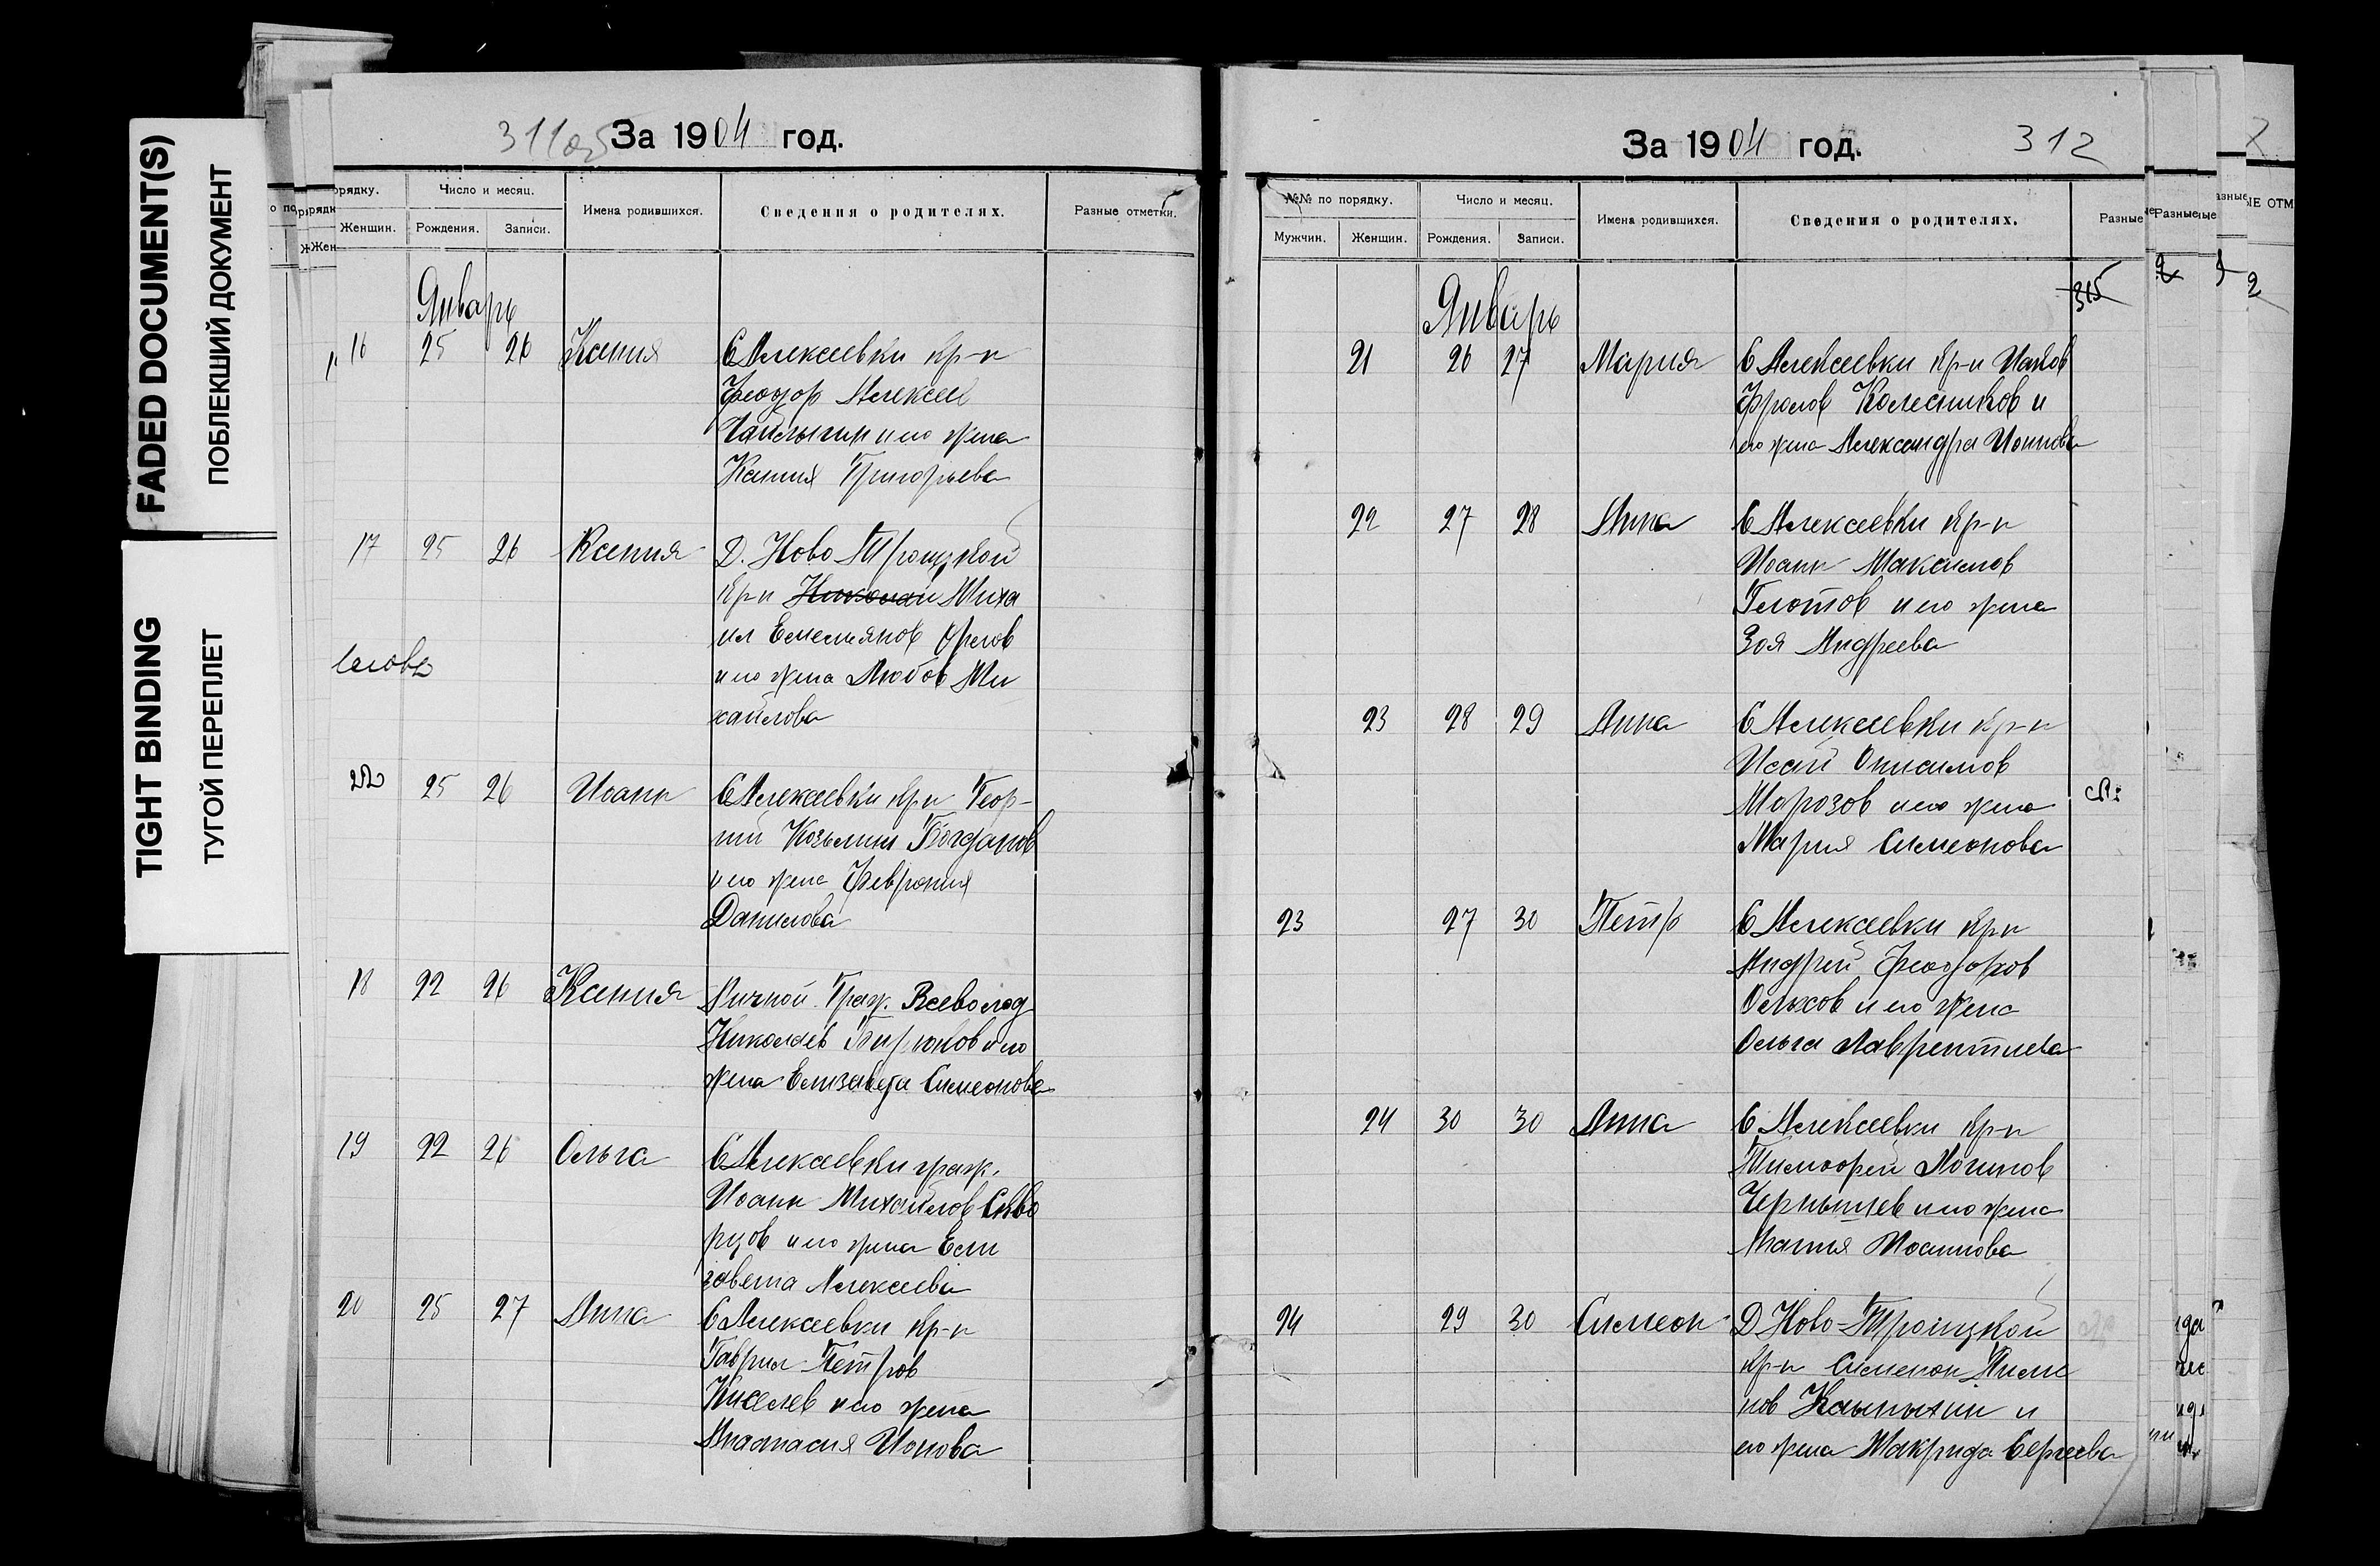 FADED DOCUMENT(S)
ПОБЛЕКШИЙ ДОКУМЕНТ
TIGHT BINDING
ТУГОЙ ПЕРЕПЛЕТ
311об
За 1904 год.
орядку.
Число и месяц.
Имена родившихся.
Сведения о родителях.
Разные отметки.
Женщин.
Рождения.
Записи.
Январь
16 25 26 Ксения С Алексеевки кр-н
Феодор Алексеев
и его жена
Ксения Григорьева
17 25 26 Ксения Д. Ново Троицкой
кр-н Николай Миха
ил Емельянов Орлов
и его жена Любов Ми
хайлова
22 25 26 Иоанн С Алексеевки кр-н Геор-
гий Козьмин Богданов
и его жена Феврония
Данилова
18 22 26 Ксения Личной Граж. Всеволод
Николаев Бирюков и его
жена Елизавета Симеонова
19 22 26 Ольга С Алексеевки граж.
Иоанн Михайлов Скво
рцов и его жена Ели
завета Алексеева
20 25 27 Анна С Алексеевки кр-н
Гаврил Петров
Киселев и его жена
Анастасия Ионова
За 1904 год.
312
№№ по порядку.
Число и месяц.
Имена родившихся.
Сведения о родителях.
Разные
Мужчин.
Женщин.
Рождения.
Записи.
315
Январь
21 26 27 Мария С Алексеевки кр-н Иаков
Фролов Колесников и
его жена Александра Иоаннова
22 27 28 Анна С Алексеевки кр-н
Иоанн Максимов
Глотов и его жена
Зоя Андреева
23 28 29 Анна С Алексеевки кр-н
Исай Онисимов
Морозов и его жена
Мария Симеонова
23 27 30 Петр С Алексеевки кр-н
Андрей Феодоров
Ольхов и его жена
Ольга Лаврентиева
24 30 30 Анна С Алексеевки кр-н
Тимофей Логинов
Чернышев и его жена
Иоаннова
24 29 30 Симеон Д Ново-Троицкой
кр-н Симеон
и
его жена Макрида Сергеева